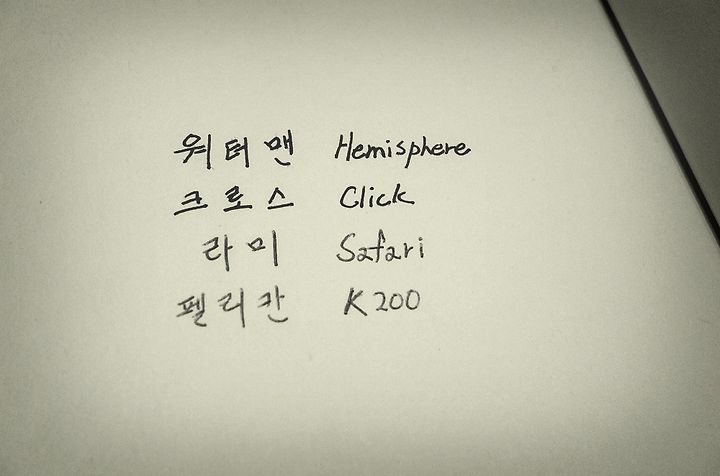 워터맨 Hemisphere
크로스 Click
라미 Safari
펠리칸 K200